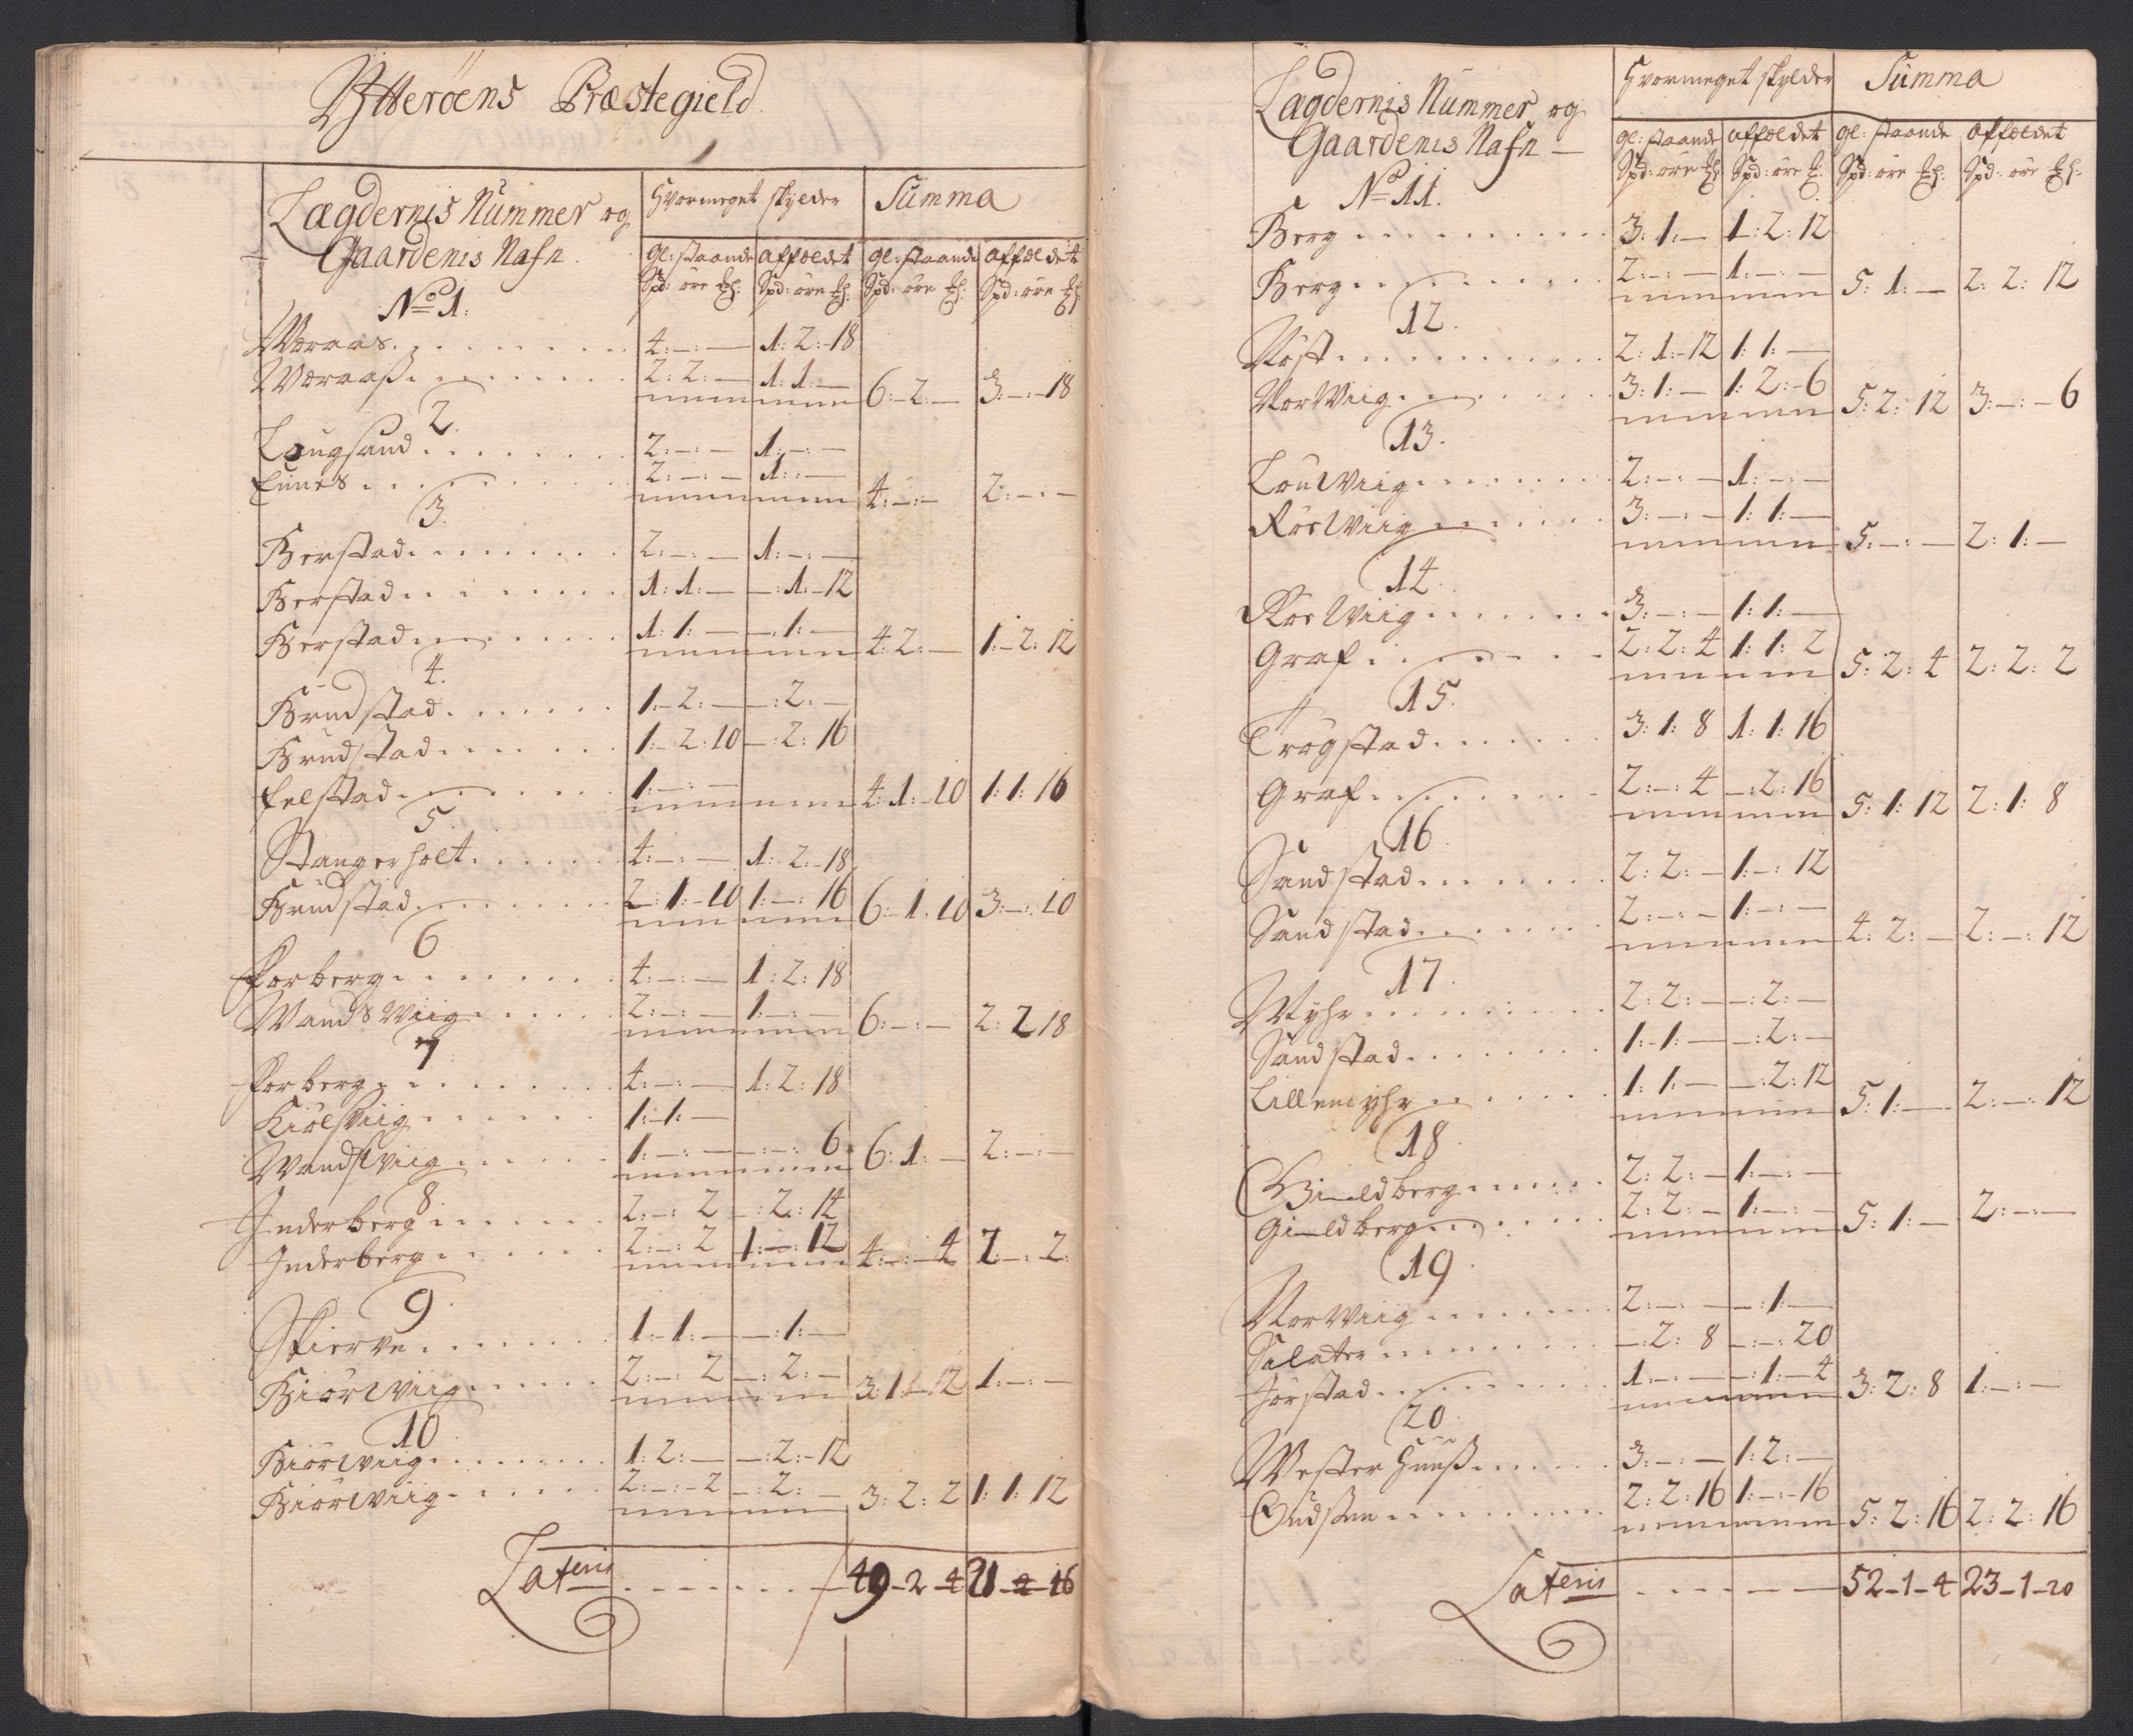 Ytterøens Præstegield
Lægdernis Nummer og
Gaardenis Nafn.
Hvormeget skylder
Summa
gl: staaende affældet gl: staaende affældet
Spd: øre Spd: øre Spd: øre Spd: øre
No 1.
Weraas 4:–:– 1:2:–18
Weraass 2:2:– 1:1:– 6:–2:– 3:–:–18
2.
Laugsand 2:–:– 1:–:–
Eünes 2:–:– 1:–:– 4:–:– 2:–:–
3.
Berstad 2:–:– 1:–:–
Berstad 1:1:– –:1:–12
Berstad 1:1:– –:1:– 4:2:– 1:–2:12
4.
Brustad 1:–2:– –:2:–
Brudstad 1:–2:10 –:2:16
Felstad 1:–:– 4:1:–10 1:1:16
5.
Stangerholt 4:–:– 1:2:–18
Brudstad 2:1:–10 1:–:16 6:–1:10 3:–:10
6.
Forberg 4:–:– 1:2:18
Wands Wiig 2:–:– 1:–:– 6:–:– 2:2 18
7
Forberg 4:–:– 1:2:18
Kiölsviig 1:–1:–
Wandswiig 1:–:– –:–:6 6:1:– 2:–:–
8.
Inderberg 2:–:2 –:2:14
Inderberg 2:–:2 1:–:12 4:–:–4 2:–:2
9.
Skierve 1:–1:– –:1:–
Biörwiig 2:–:2 –:2:– 3:1:–12 1:–:–
10
Biörwiig 1:2:– –:2:–12
Biörwiig 2:–:–2 –:2:– 3:2:2 1:1:12
Lateris 49–2–4 21–2–16
Lægdernis Nummer og
Gaardenis Nafn –
Hvormeget skylder
Summa
gl: staaende affældet gl: staaende affældet
Spd: øre Spd: øre Spd: øre Spd: øre
No 11.
Berg 3:1:– 1:2:12
Berg 2:–:– 1:–:– 5:1:– 2:2:12
12.
Röst 2:1:–12 1:1:–
NorWiig 3:1:– 1:2:–6 5:2:12 3:–:–6
13.
LouWiig 2:–:– 1:–:–
RörWiig 3:–:– 1:1:– 5:–:– 2:1:–
14.
RörWiig 3:–:– 1:1:–
Graf 2:2:4 1:1:2 5:2:4 2:2:2
15.
Trögstad 3:1:8 1:1:16
Graf 2:–:4 –:2:16 5:1:12 2:1:8
16.
Sandstad 2:2:– 1:–:12
Sandstad 2:–:– 1:–:– 4:2:– 2:–:12
17.
Myhr 2:2:– –:2:–
Sandstad 1:–1:– –:2:–
Lillemyhr 1:1:– –:2:12 5:1:– 2:–:12
18.
Gieldberg 2:2:– 1:–:–
Gieldberg 2:2:– 1:–:– 5:1:– 2:–:–
19.
NorWiig 2:–:– –:1:–
Salater –:2:8 –:–:20
Jörstad 1:–:– –:1:–4 3:2:8 1:–:–
20.
Wester Huuß 3:–:– 1:2:–
2:2:16 1:–:–16 5:2:16 2:2:16
Lateris 52–1–4 23–1–20